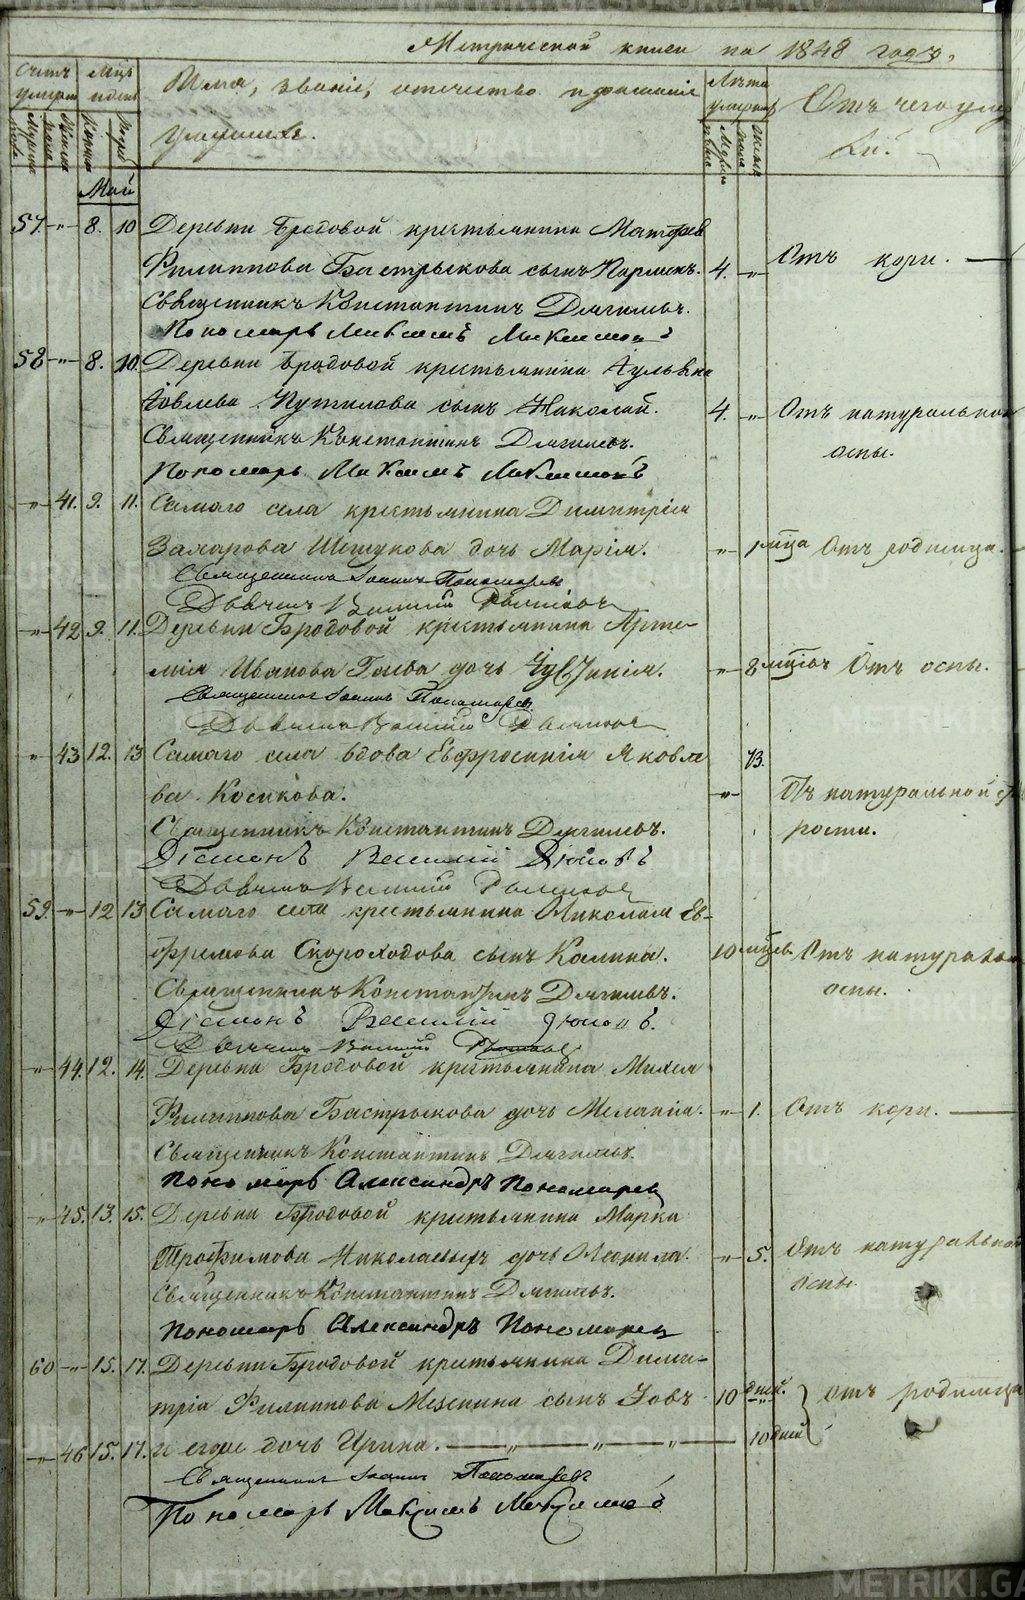 Метрической книги на 1848 годъ.
Счетъ умерш Мѣсяцъ и день Имя, званіе, отечество и фамилія Лѣта умершихъ Отъ чего умер
умершихъ. ли?
Май
57 -"- 8. 10 Деревни Бродовой крестьянина Матфея
Филиппова Бастрыкова сынъ 4. -"- Отъ кори.
Священникъ Константинъ Дягилевъ.
Пономарь Максимъ
58 -"- 8. 10. Деревни Бродовой крестьянина
Іовлева Путилова сынъ Николай. 4. " Отъ натуральной
оспы.
Священникъ Константинъ Дягилевъ.
Пономарь Максимъ
-"- 41. 9. 11. Самаго села крестьянина Димитрія
Захарова Шешукова дочь Марія. -"- 1 мца Отъ родимца.
Священникъ Іоаннъ Пономаревъ
Дьячекъ Василій
-"- 42 9. 11. Деревни Бродовой крестьянина Арте-
мія Иванова Гаева дочь -"- 8 мцовъ Отъ оспы.
Священникъ Іоаннъ Пономаревъ
Дьячекъ Василій
" 43 12. 13 Самаго села вдова Евфросинія Яковле
ва Косикова. -"- 73. Отъ натуральной ста
рости.
Священникъ Константинъ Дягилевъ.
Діаконъ Василій
Дьячекъ Василій
59. -"- 12 13 Самаго села крестьянина Николая Ев-
фремова Скороходова сынъ Калина. 10 мцевъ Отъ натуральной
оспы.
Священникъ Константинъ Дягилевъ.
Діаконъ Василій
Дьячекъ Василій
-"- 44. 12. 14. Деревни Бродовой крестьянина Михея
Филиппова Бастрыкова дочь Меланія. -"- 1. Отъ кори.
Священникъ Константинъ Дягилевъ.
Пономарь Александръ Пономарев
" 45. 13. 15. Деревни Бродовой крестьянина Марка
Трофимова Николаевыхъ дочь Неонила. -"- 5. Отъ натуральной
оспы
Священникъ Константинъ Дягилевъ.
Пономарь Александръ Пономарев
60 -"- 15. 17. Деревни Бродовой крестьянина Дими-
трія Филиппова Мезенина сынъ Іовъ 10 дней. -"- отъ родимца
-"- 46 15. 17. и егоже дочь Ирина. -"- 10 дней
Священникъ Іоаннъ Пономаревъ
Пономарь Максимъ
METRIKI.GASO-URAL.RU